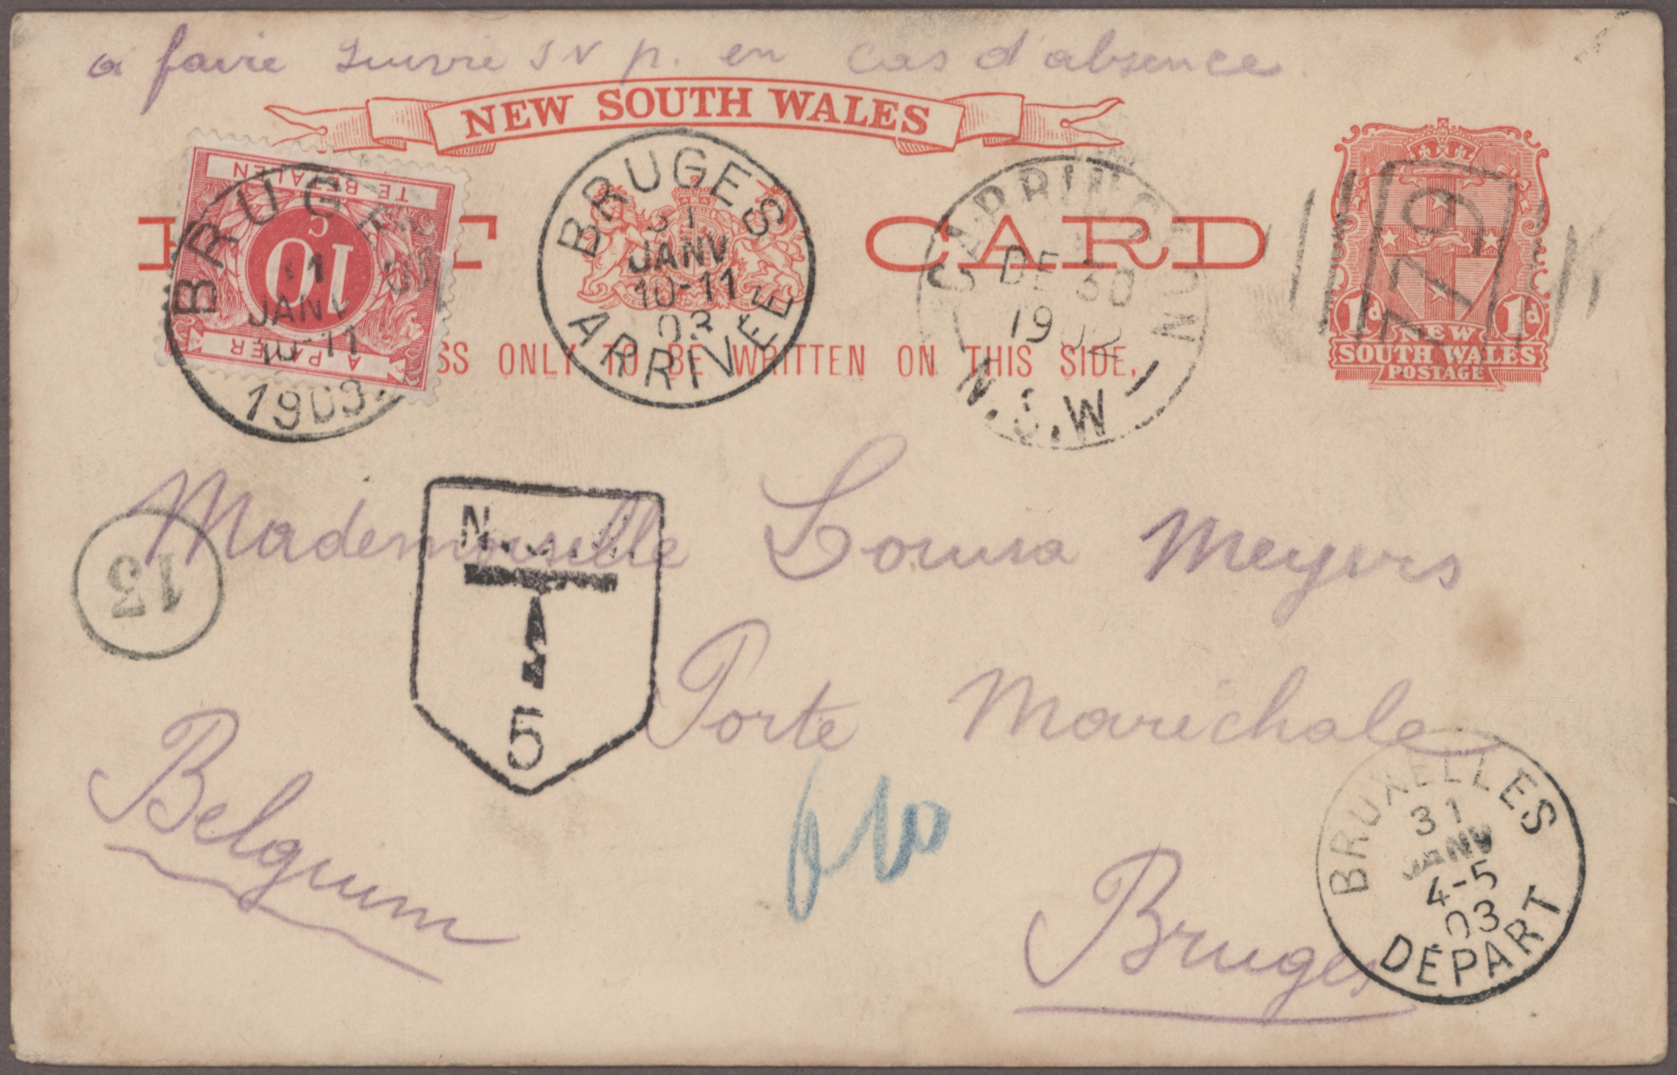 a faire suivre s v p. en cas d'absence
NEW SOUTH WALES
CARD
SS ONLY TO BE WRITTEN ON THIS SIDE.
TE BETALEN
10 c
A PAYER
BRUGES
JANV
10-11
1903
BRUGES
31
JANV
10-11
03
ARRIVÉE
DE 30
1902
N.S.W
179
1d 1d
NEW
SOUTH WALES
POSTAGE
Mademoiselle Louisa Meyers
13
N.S.W.
T
5
Porte Maréchale
Belgium
Bruges
BRUXELLES
31
JANV
4-5
03
DÉPART